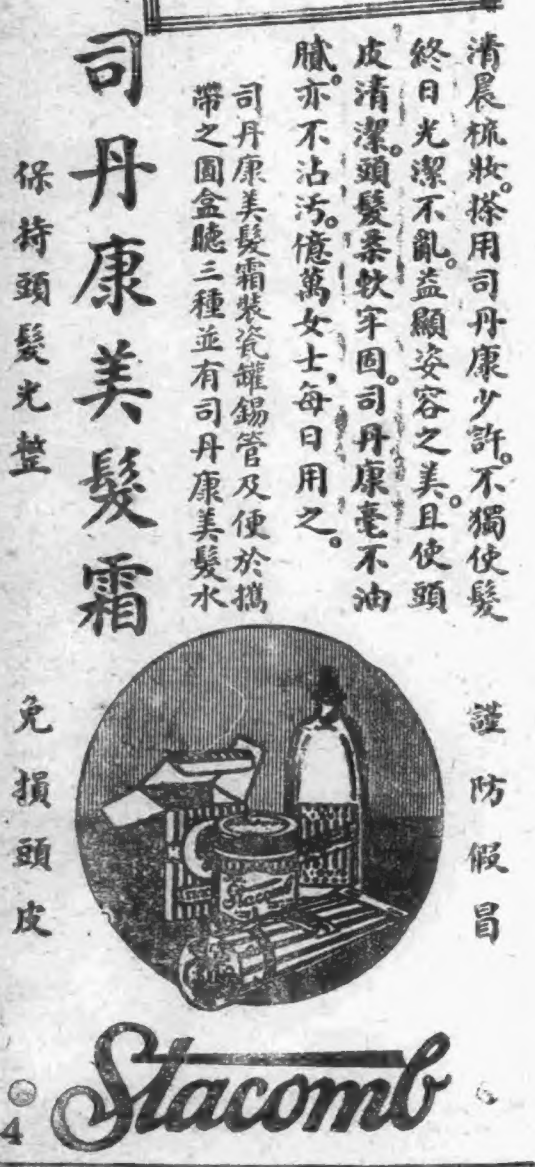 清晨梳妝。搽用司丹康少許。不獨使髮
終日光潔不亂。益顯姿容之美。且使頭
皮清潔。頭髮柔軟牢固。司丹康毫不油
膩。亦不沾汚。億萬女士，每日用之。
司丹康美髮霜裝瓷罐錫管及便於攜
帶之圓盒聽三種並有司丹康美髮水
司丹康美髮霜
保持頭髮光整
謹防假冒
免損頭皮
Stacomb
Stacomb
4